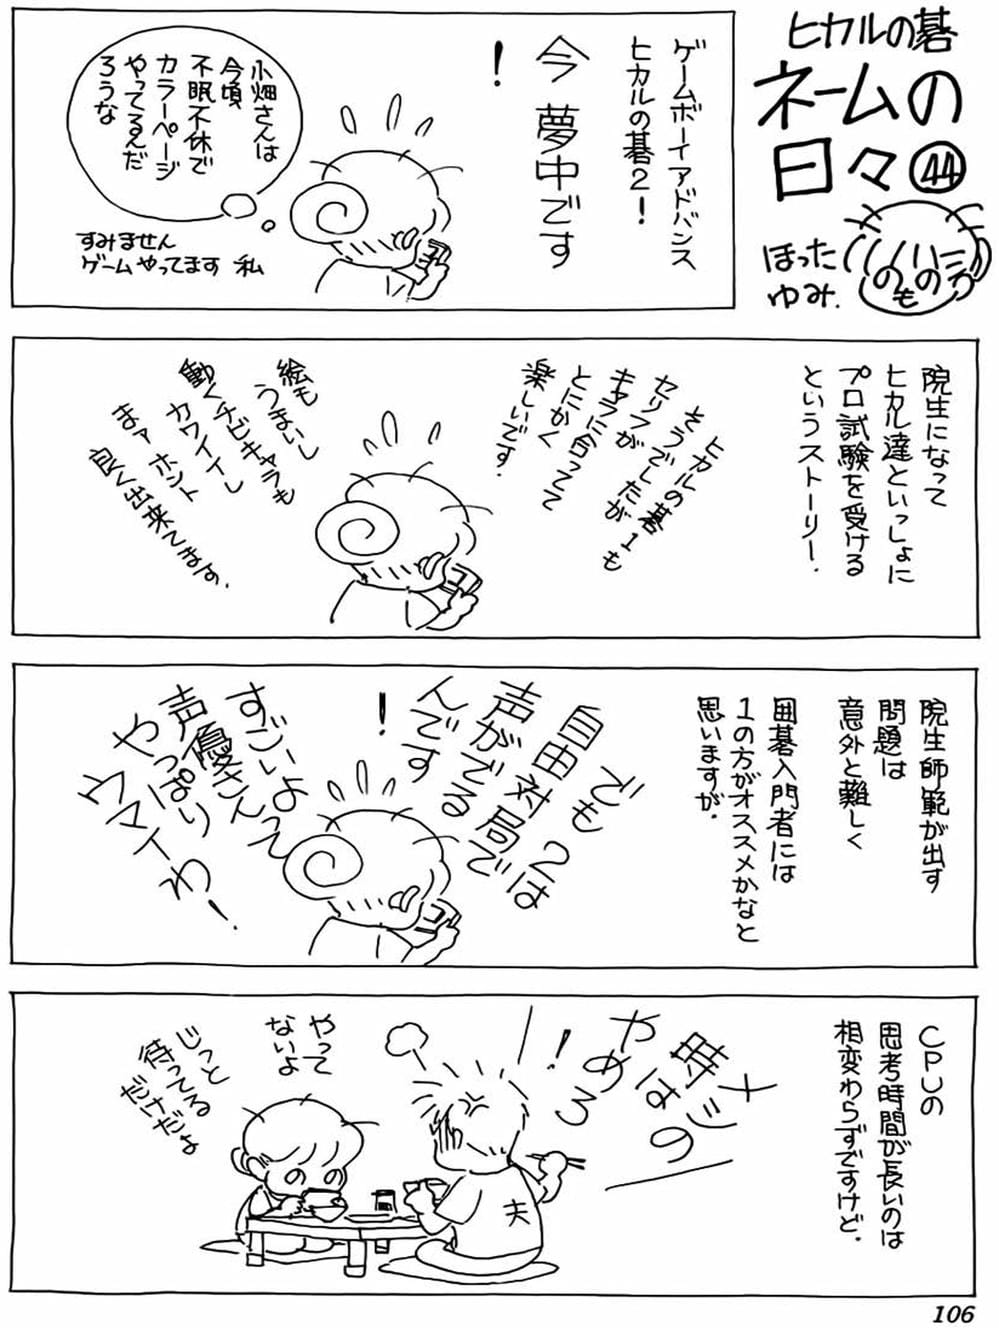 ヒカルの碁
ネームの
日々㊹
ほった
ゆみ.
ゲームボーイアドバンス
ヒカルの碁2!
今 夢中です
!
小畑さんは
今頃
不眠不休で
カラーページ
やってるんだ
ろうな
すみません
ゲームやってます 私
院生になって
ヒカル達といっしょに
プロ試験を受ける
というストーリー.
ヒカルの碁1も
そうでしたが
セリフが
キャラに合ってて
とにかく
楽しいです.
絵も
うまいし
動くチビキャラも
カワイイし
まァ ホント
良く出来てます.
院生師範が出す
問題は
意外と難しく
囲碁入門者には
1の方がオススメかなと
思いますが.
でも 2は
自由対局で
声がでる
んです
!
すごいよって
声優さん
やっぱり
ウマイわ!
CPUの
思考時間が長いのは
相変わらずですけど.
メシの
時は
やめろ
!
やって
ないよ
じっと
待ってる
だけだよ
夫
106